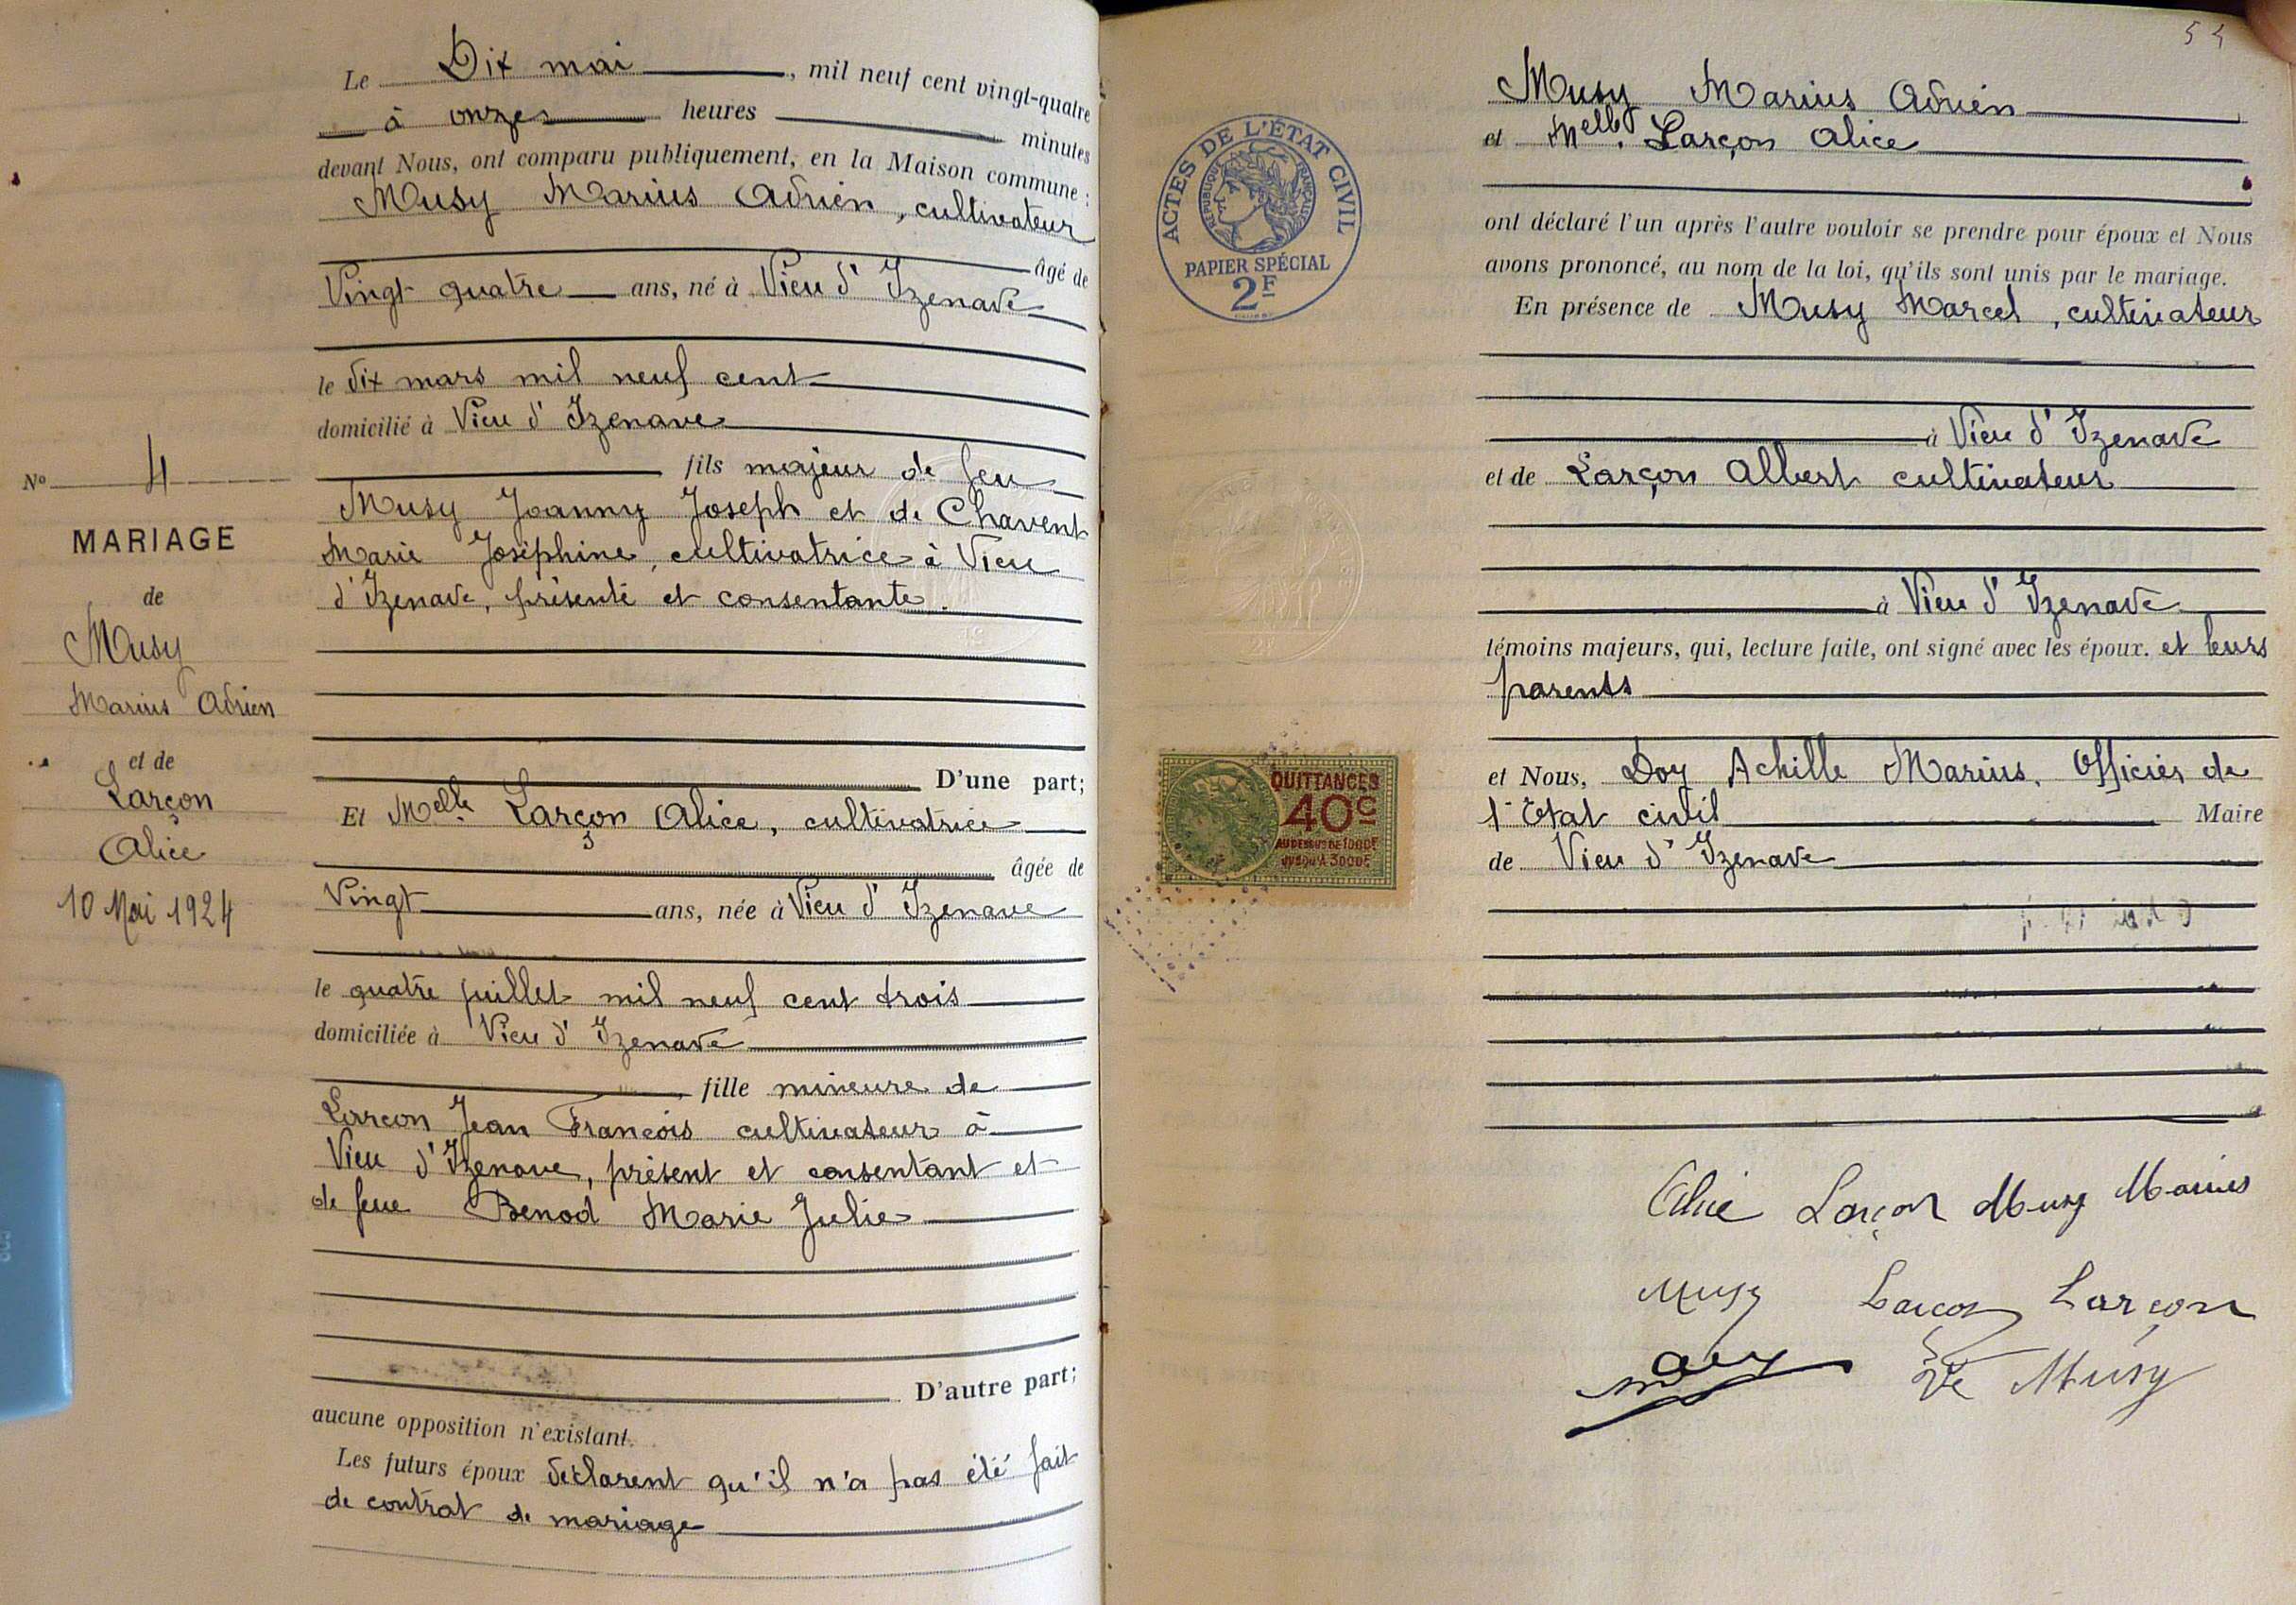 Le Dix mai, mil neuf cent vingt-quatre
à onzes heures minutes
devant Nous, ont comparu publiquement, en la Maison commune :
Musy Marius Adrien, cultivateur
âgé de
Vingt quatre ans, né à Vieu d'Izenave
le dix mars mil neuf cent
domicilié à Vieu d'Izenave
fils majeur de feu
Musy Joanny Joseph et de Chavent
Marie Joséphine, cultivatrice à Vieu
d'Izenave, présente et consentante.
D'une part;
Et Melle Larçon Alice, cultivatrice
âgée de
Vingt ans, née à Vieu d'Izenave
le quatre juillet mil neuf cent trois
domiciliée à Vieu d'Izenave
fille mineure de
Larçon Jean François cultivateur à
Vieu d'Izenave, présent et consentant et
de feue Benod Marie Julie
D'autre part;
aucune opposition n'existant.
Les futurs époux déclarent qu'il n'a pas été fait
de contrat de mariage
No 4
MARIAGE
de
Musy
Marius Adrien
et de
Larçon
Alice
10 Mai 1924
54
Musy Marius Adrien
et Melle Larçon Alice
ont déclaré l'un après l'autre vouloir se prendre pour époux et Nous
avons prononcé, au nom de la loi, qu'ils sont unis par le mariage.
En présence de Musy Marcel, cultivateur
à Vieu d'Izenave
et de Larçon Albert cultivateur
à Vieu d'Izenave
témoins majeurs, qui, lecture faite, ont signé avec les époux. et leurs
parents
et Nous, Doy Achille Marius. Officier de
l'Etat civil Maire
de Vieu d'Izenave
Alice Larçon Musy Marius
Musy Larçon Larçon
Ve Musy
ACTES DE L'ÉTAT CIVIL
RÉPUBLIQUE FRANÇAISE
PAPIER SPÉCIAL
2F
QUITTANCES
40c
AU DESSUS DE 1000F
JUSQU'À 3000F